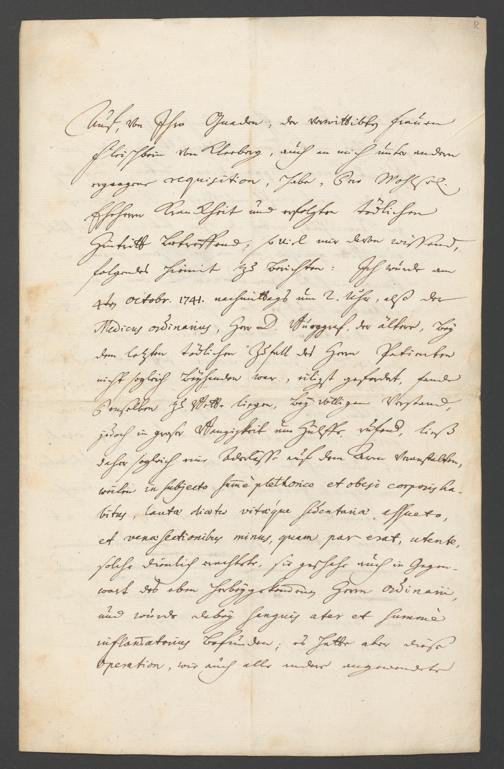 Auf, von Ihro Gnaden, der verwittibten Frauen
Fleischbein von Kleeberg, auch an mich unter andern
ergangene requisition, habe, Dero Wohlseel.
Eheherrn Kranckheit und erfolgten tödtlichen
Hintritt betreffend, soviel mir davon wissend,
folgendes hiemit zu berichten: Ich wurde am
4ten octobr. 1741. nachmittags um 2. Uhr, alß der
Medicus ordinarius, Herr D. Burggraf. der ältere, bey
dem letzten tödtlichen Zufall des Herrn Patienten
nicht sogleich beyhanden war, eiligst gefordert, fande
Denselben zu Bette liegen, bey völligem Verstand,
jedoch in großer Bangigkeit um Hülffe rufend, ließ
daher sogleich eine Aderlaß auf dem Arm veranstalten,
weilen in subjecto summe plethorico et obesi corporis ha-
bitus, lauta diaeta vitaque sedentaria assueto,
et venaesectionibus minus, quam par erat, utente,
solche dienlich erachtete, sie geschahe auch in Gegen-
wart des eben herbeygekommenen Herrn ordinarii,
und wurde dabey sanguis ater et summe
inflammatorius befunden; es hatte aber diese
operation, wie auch alle andere angewendete